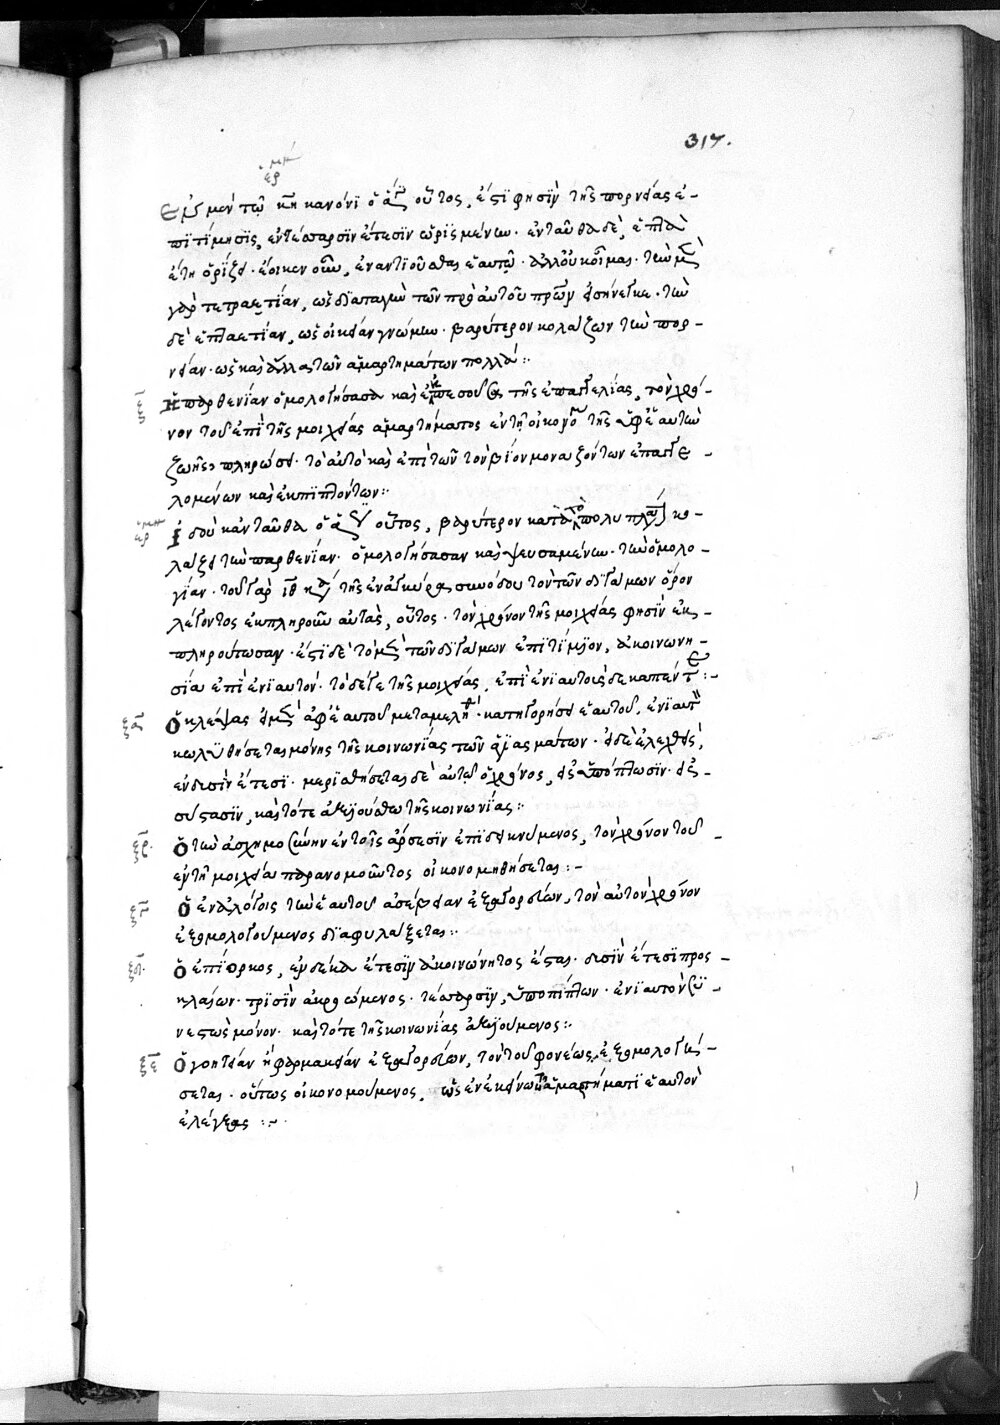 317.
ἑρμ
Ἐν μὲν τῷ κβ κανόνι ὁ ἅγιος οὗτος, ἔστι φησὶν τῆς πορνείας ἐ-
πιτίμησις, ἐν τέσσαρσιν ἔτεσιν ὡρισμένων· ἐνταῦθα δὲ, ἑπτὰ
ἔτη ὁρίζει· ἔοικεν οὖν, ἐναντιοῦσθαι ἑαυτῷ· ἀλλ' οὔκουν μας· τὴν μὲν
γὰρ τετραετίαν, ὡς διαταγὴν τῶν πρὸ αὐτοῦ πρων εἰσήνεγκε· τὴν
δὲ ἑπταετίαν, ὡς οἰκείαν γνώμην· βαρύτερον κολάζων τὴν πορ-
νείαν· ὡς καὶ ἄλλα τῶν ἁμαρτημάτων πολλά:
ξ Ἡ παρθενίαν ὁμολογήσασα καὶ ἐκπεσοῦσα τῆς ἐπαγγελίας, τὸν χρό-
νον τοῦ ἐπὶ τῆς μοιχείας ἁμαρτήματος ἐν τῇ οἰκονομ τῆς ἐφ' ἑαυτὴν
ζωῆς πληρώσει· τὸ αὐτὸ καὶ ἐπὶ τῶν τὸν βίον μοναζόντων ἐπαγγε-
λομένων καὶ ἐκπιπτόντων:
ἑρμ Ἰδοὺ κἀνταῦθα ὁ ἅγιος οὗτος, βαρύτερον κατὰ τὸ πολὺ πλα κο-
λάζει τὴν παρθενίαν· ὁμολογήσασαν καὶ ψευσαμένην· τὴν ὁμολο-
γίαν· τοῦ γὰρ ιθ κα τῆς ἐν ἀγκύρᾳ συνόδου τὸν τῶν διγάμων ὅρον
λέγοντος ἐκπληροῦν αὐτὰς, οὗτος· τὸν χρόνον τῆς μοιχείας φησὶν ἐκ-
πληρούτωσαν· ἔστι δὲ τὸ μὲν τῶν διγάμων ἐπιτίμιον, ἀκοινωνη-
σία ἐπὶ ἐνιαυτόν· τὸ δέ γε τῆς μοιχείας, ἐπὶ ἐνιαυτοὺς δεκαπέντε:-
ξα Ὁ κλέψας εἰ μὲν ἀφ' ἑαυτοῦ μεταμεληθ· κατηγορήσει ἑαυτοῦ, ἐνιαυτ
κωλυθήσεται μόνης τῆς κοινωνίας τῶν ἁγιασμάτων· εἰ δὲ ἐλεγχθεὶς,
ἐν δυσὶν ἔτεσι· μερισθήσεται δὲ αὐτῷ ὁ χρόνος, εἰς ὑπόπτωσιν· εἰς
σύστασιν, καὶ τότε ἀξιούσθω τῆς κοινωνίας:
ξβ· Ὁ τὴν ἀσχημοσύνην ἐν τοῖς ἄρρεσιν ἐπιδεικνύμενος, τὸν χρόνον τοῦ -
ἐν τῇ μοιχείᾳ παρανομοῦντος οἰκονομηθήσεται:-
ξγ Ὁ ἐν ἀλόγοις τὴν ἑαυτοῦ ἀσέβειαν ἐξαγορεύων, τὸν αὐτὸν χρόνον
ἐξομολογούμενος διαφυλάξεται:
ξδ· Ὁ ἐπίορκος, ἐν δέκα ἔτεσιν ἀκοινώνητος ἔσται· δυσὶν ἔτεσι προς-
κλαίων· τρισὶν ἀκροώμενος· τέσσαρσιν, ὑποπίπτων· ἐνιαυτὸν συ-
νεστὼς μόνον· καὶ τότε τῆς κοινωνίας ἀξιούμενος:
ξε Ὁ γοητείαν ἢ φαρμακείαν ἐξαγορεύων, τὸν τοῦ φονέως ἐξομολογή-
σεται· οὕτως οἰκονομούμενος, ὡς ἐν ἐκείνῳ τῷ ἁμαρτήματι ἑαυτὸν
ἐλέγξας :~